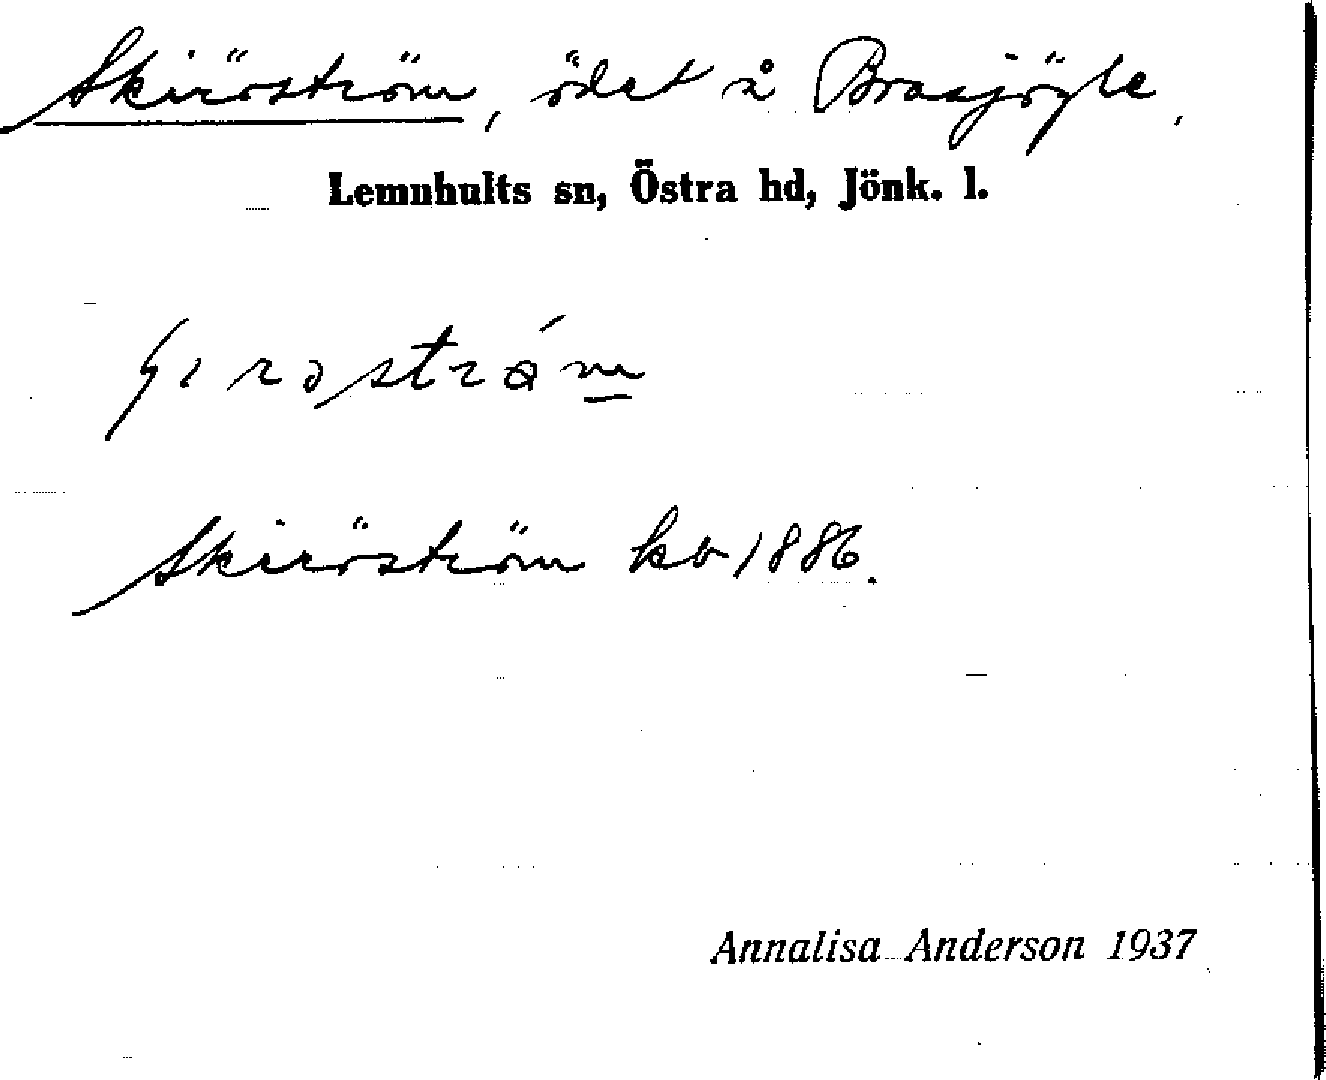 Skiröström, ödet å Brasjöyle,
Lemnhults sn, Östra hd, Jönk. l.
Skiröström kb 1886.
Annalisa Anderson 1937